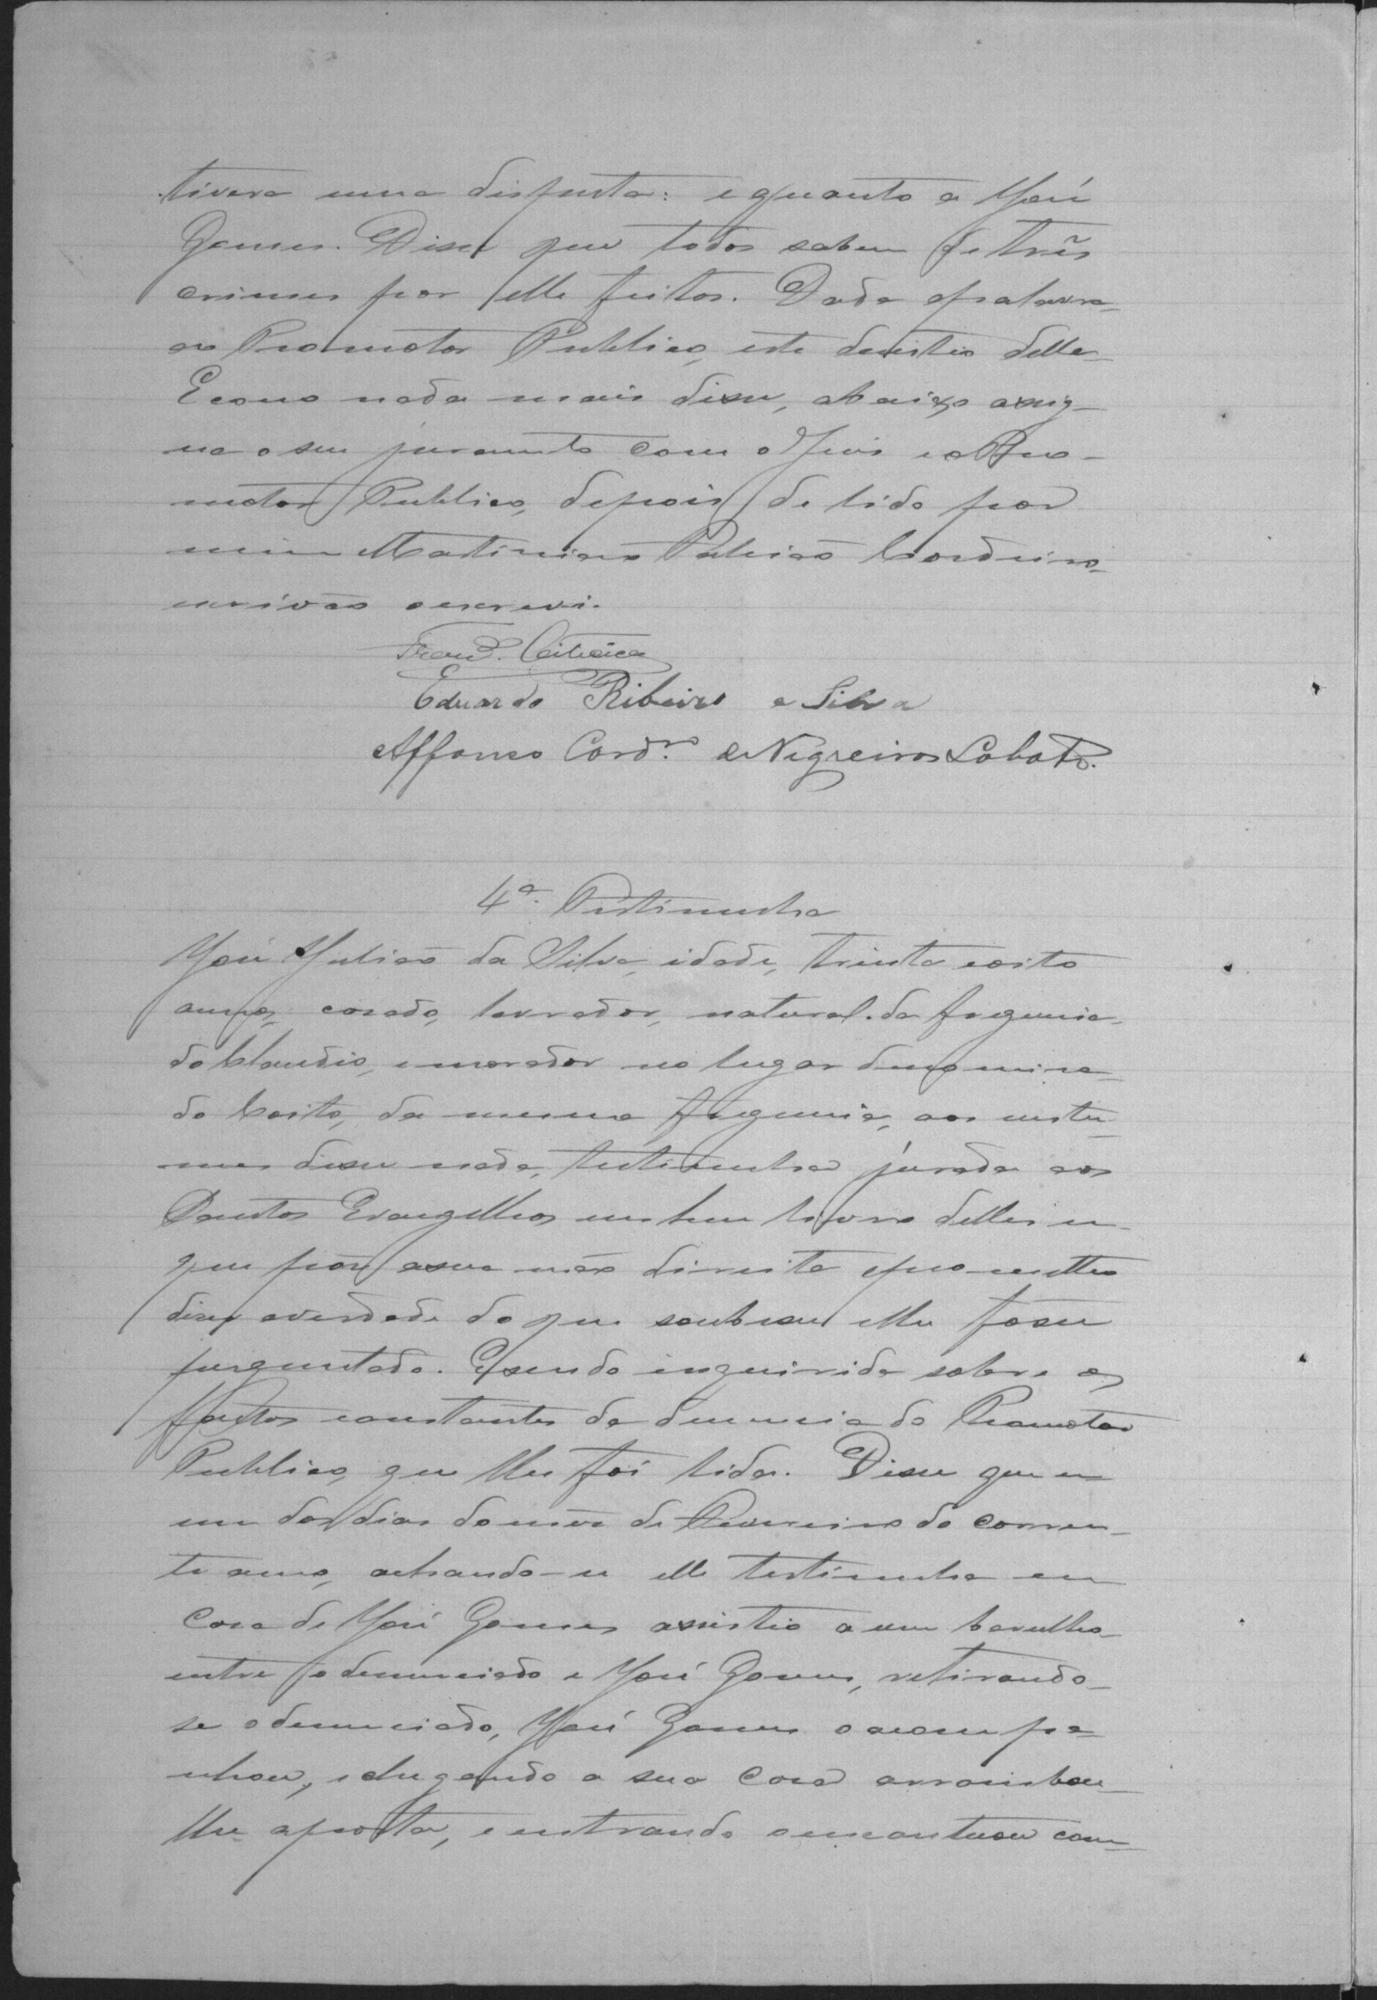 tivera uma disputa: e quanto a José
Gomes. Disse que todos sabem de três
crimes por elle feitos. Dada a palavra
ao Promotor Publico, este desistio della
E como nada mais disse, abaixo assig-
na o seu juramento com o Juis e o Pro-
motor Publico, depois de lido por
mim Martiniano Cordeiro
escrivão o escrevi.
Eduardo Ribeiro e Silva
Affonso Cordro. de Negreiros Lobato.
4a. Testimunha
José Julião da Silva, idade, trinta e oito
annos, casado, lavrador, natural da freguesia
do Claudio, e morador no lugar denomina-
do da mesma freguesia, aos custu-
mes disse nada, testimunha jurada aos
Santos Evangelhos em hum livro delles em
que pôs a sua mão direita e prometteo
diser a verdade do que soubesse e lhe fosse
perguntado. E sendo inquirida sobre os
factos constantes da denuncia do Promotor
Publico, que lhe foi lida. Disse que em
um dos dias do mês de Fevereiro do corren-
te anno, achando-se elle testimunha em
Casa de José Gomes assistio a um barulho
entre o denunciado e José Gomes, retirando-
se o denunciado, José Gomes o acompa-
nhou, e chegando a sua Casa arrombou-
lhe a porta, e entrando o encontrou com